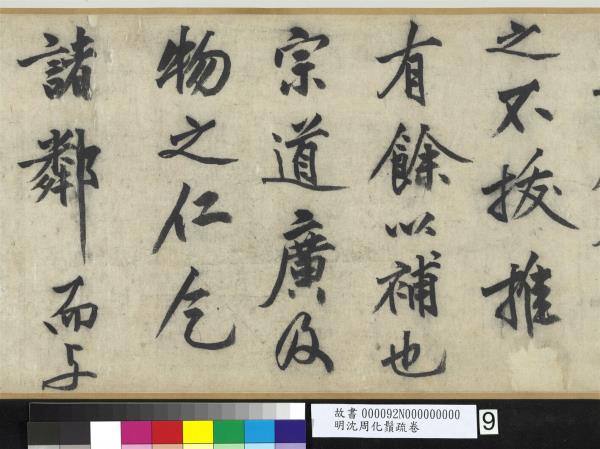 之不拔推
有餘以補也
宗道廣及
物之仁乞
諸鄰而与
故書 000092N000000000
明沈周化鬚疏卷
9